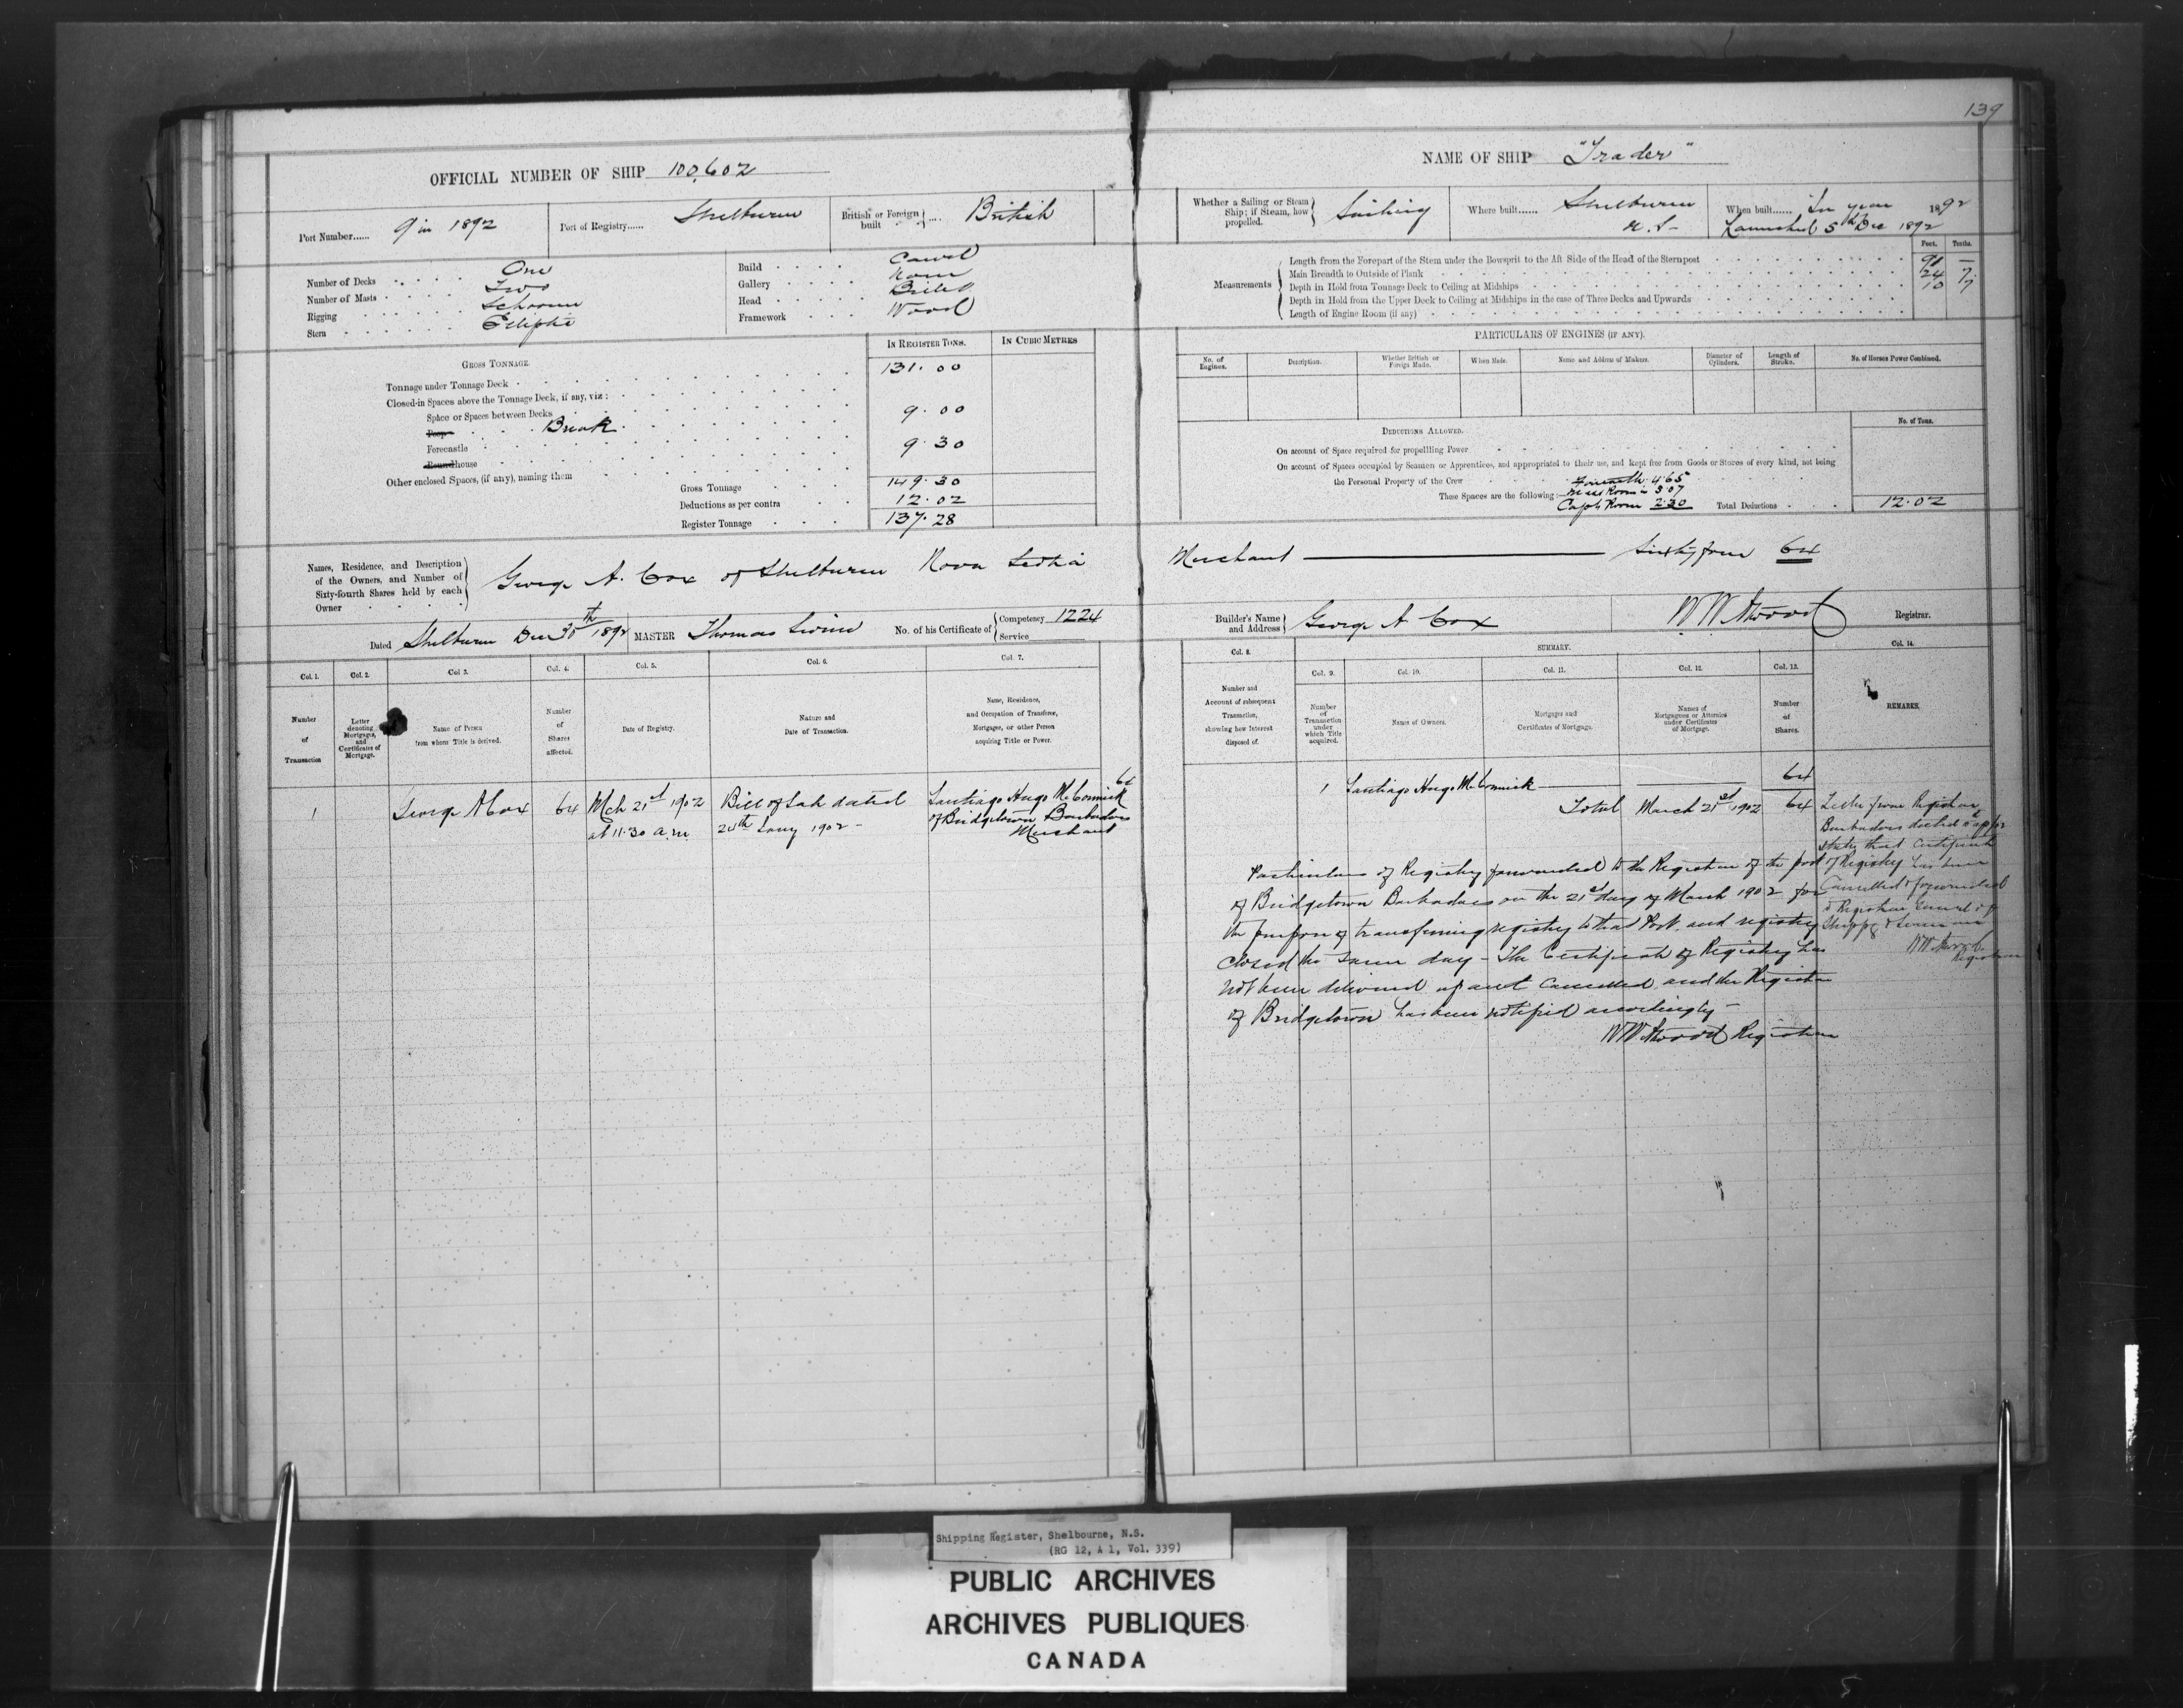 139
OFFICIAL NUMBER OF SHIP 100,602
NAME OF SHIP "Trader"
Port Number...... 9 in 1892
Port of Registry...... Shelburne
British or Foreign built .... British
Whether a Sailing or Steam Ship; if Steam, how propelled. Sailing
Where built...... Shelburne N.S.
When built...... In year 1892
Launched 5th Dec 1892
Number of Decks One
Number of Masts Two
Rigging Schooner
Stern Elliptic
Build Carvel
Gallery None
Head Billet
Framework Wood
Measurements
Feet. Tenths.
Length from the Forepart of the Stem under the Bowsprit to the Aft Side of the Head of the Sternpost 91 –
Main Breadth to Outside of Plank 24 7
Depth in Hold from Tonnage Deck to Ceiling at Midships 10 7
Depth in Hold from the Upper Deck to Ceiling at Midships in the case of Three Decks and Upwards
Length of Engine Room (if any)
GROSS TONNAGE.
IN REGISTER TONS.
IN CUBIC METRES
Tonnage under Tonnage Deck 131.00
Closed-in Spaces above the Tonnage Deck, if any, viz:
Space or Spaces between Decks
Poop Break 9.00
Forecastle 9.30
Roundhouse
Other enclosed Spaces, (if any), naming them
Gross Tonnage 149.30
Deductions as per contra 12.02
Register Tonnage 137.28
PARTICULARS OF ENGINES (IF ANY).
No. of Engines.
Description.
Whether British or Foreign Made.
When Made.
Name and Address of Makers.
Diameter of Cylinders.
Length of Stroke.
No. of Horses Power Combined.
DEDUCTIONS ALLOWED.
No. of Tons.
On account of Space required for propelling Power
On account of Spaces occupied by Seamen or Apprentices, and appropriated to their use, and kept free from Goods or Stores of every kind, not being
the Personal Property of the Crew
These Spaces are the following:—
Forecastle 4.65
Mess Room 5.07
Capts Room 2.30
Total Deductions 12.02
Names, Residence, and Description of the Owners, and Number of Sixty-fourth Shares held by each Owner
George A. Cox of Shelburne Nova Scotia Merchant Sixty four 64
Dated Shelburne Dec 30th 1892
MASTER Thomas
No. of his Certificate of Competency 1224
Service
Builder's Name and Address George A Cox
W W Atwood Registrar.
Col. 1. Col. 2. Col 3. Col. 4. Col. 5. Col. 6. Col. 7.
Number of Transaction
Letter denoting Mortgages, and Certificates of Mortgage.
Name of Person from whom Title is derived.
Number of Shares affected.
Date of Registry.
Nature and Date of Transaction.
Name, Residence, and Occupation of Transferee, Mortgagee, or other Person acquiring Title or Power.
Col. 8.
SUMMARY.
Col. 9. Col. 10. Col. 11. Col. 12. Col. 13. Col. 14.
Number and Account of subsequent Transaction, showing how Interest disposed of.
Number of Transaction under which Title acquired.
Names of Owners.
Mortgages and Certificates of Mortgage.
Names of Mortgagees or Attornies under Certificates of Mortgage.
Number of Shares.
REMARKS.
1 George A Cox 64 Mch 21st 1902 at 11.30 a.m
Bill of Sale dated
20th Jany 1902 –
Santiago Hugo McCormick 64
of Bridgetown Barbados
Merchant
1 Santiago Hugo McCormick 64
Total March 21st 1902 64
Particulars of Registry forwarded to the Registrar of the port
of Bridgetown Barbados on the 21st day of March 1902 for
the purpose of transferring registry to that Port, and registry
closed the same day – The Certificate of Registry has
not been delivered up and cancelled and the Registrar
of Bridgetown has been notified accordingly –
W W Atwood Registrar
Letter from Registrar
Barbados dated
states that Certificate
of Registry has been
Cancelled & forwarded
to Registrar General of
Shippg & Seamen
W W Atwood
Registrar
Shipping Register, Shelbourne, N.S.
(RG 12, A 1, Vol. 339)
PUBLIC ARCHIVES
ARCHIVES PUBLIQUES
CANADA